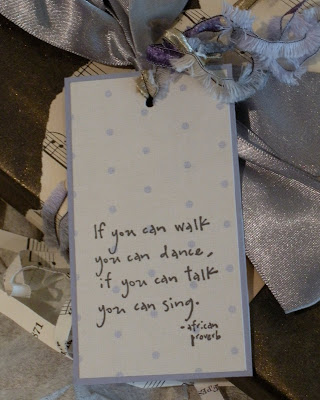 If you can walk
you can dance,
if you can talk
you can sing.
- african
proverb
571